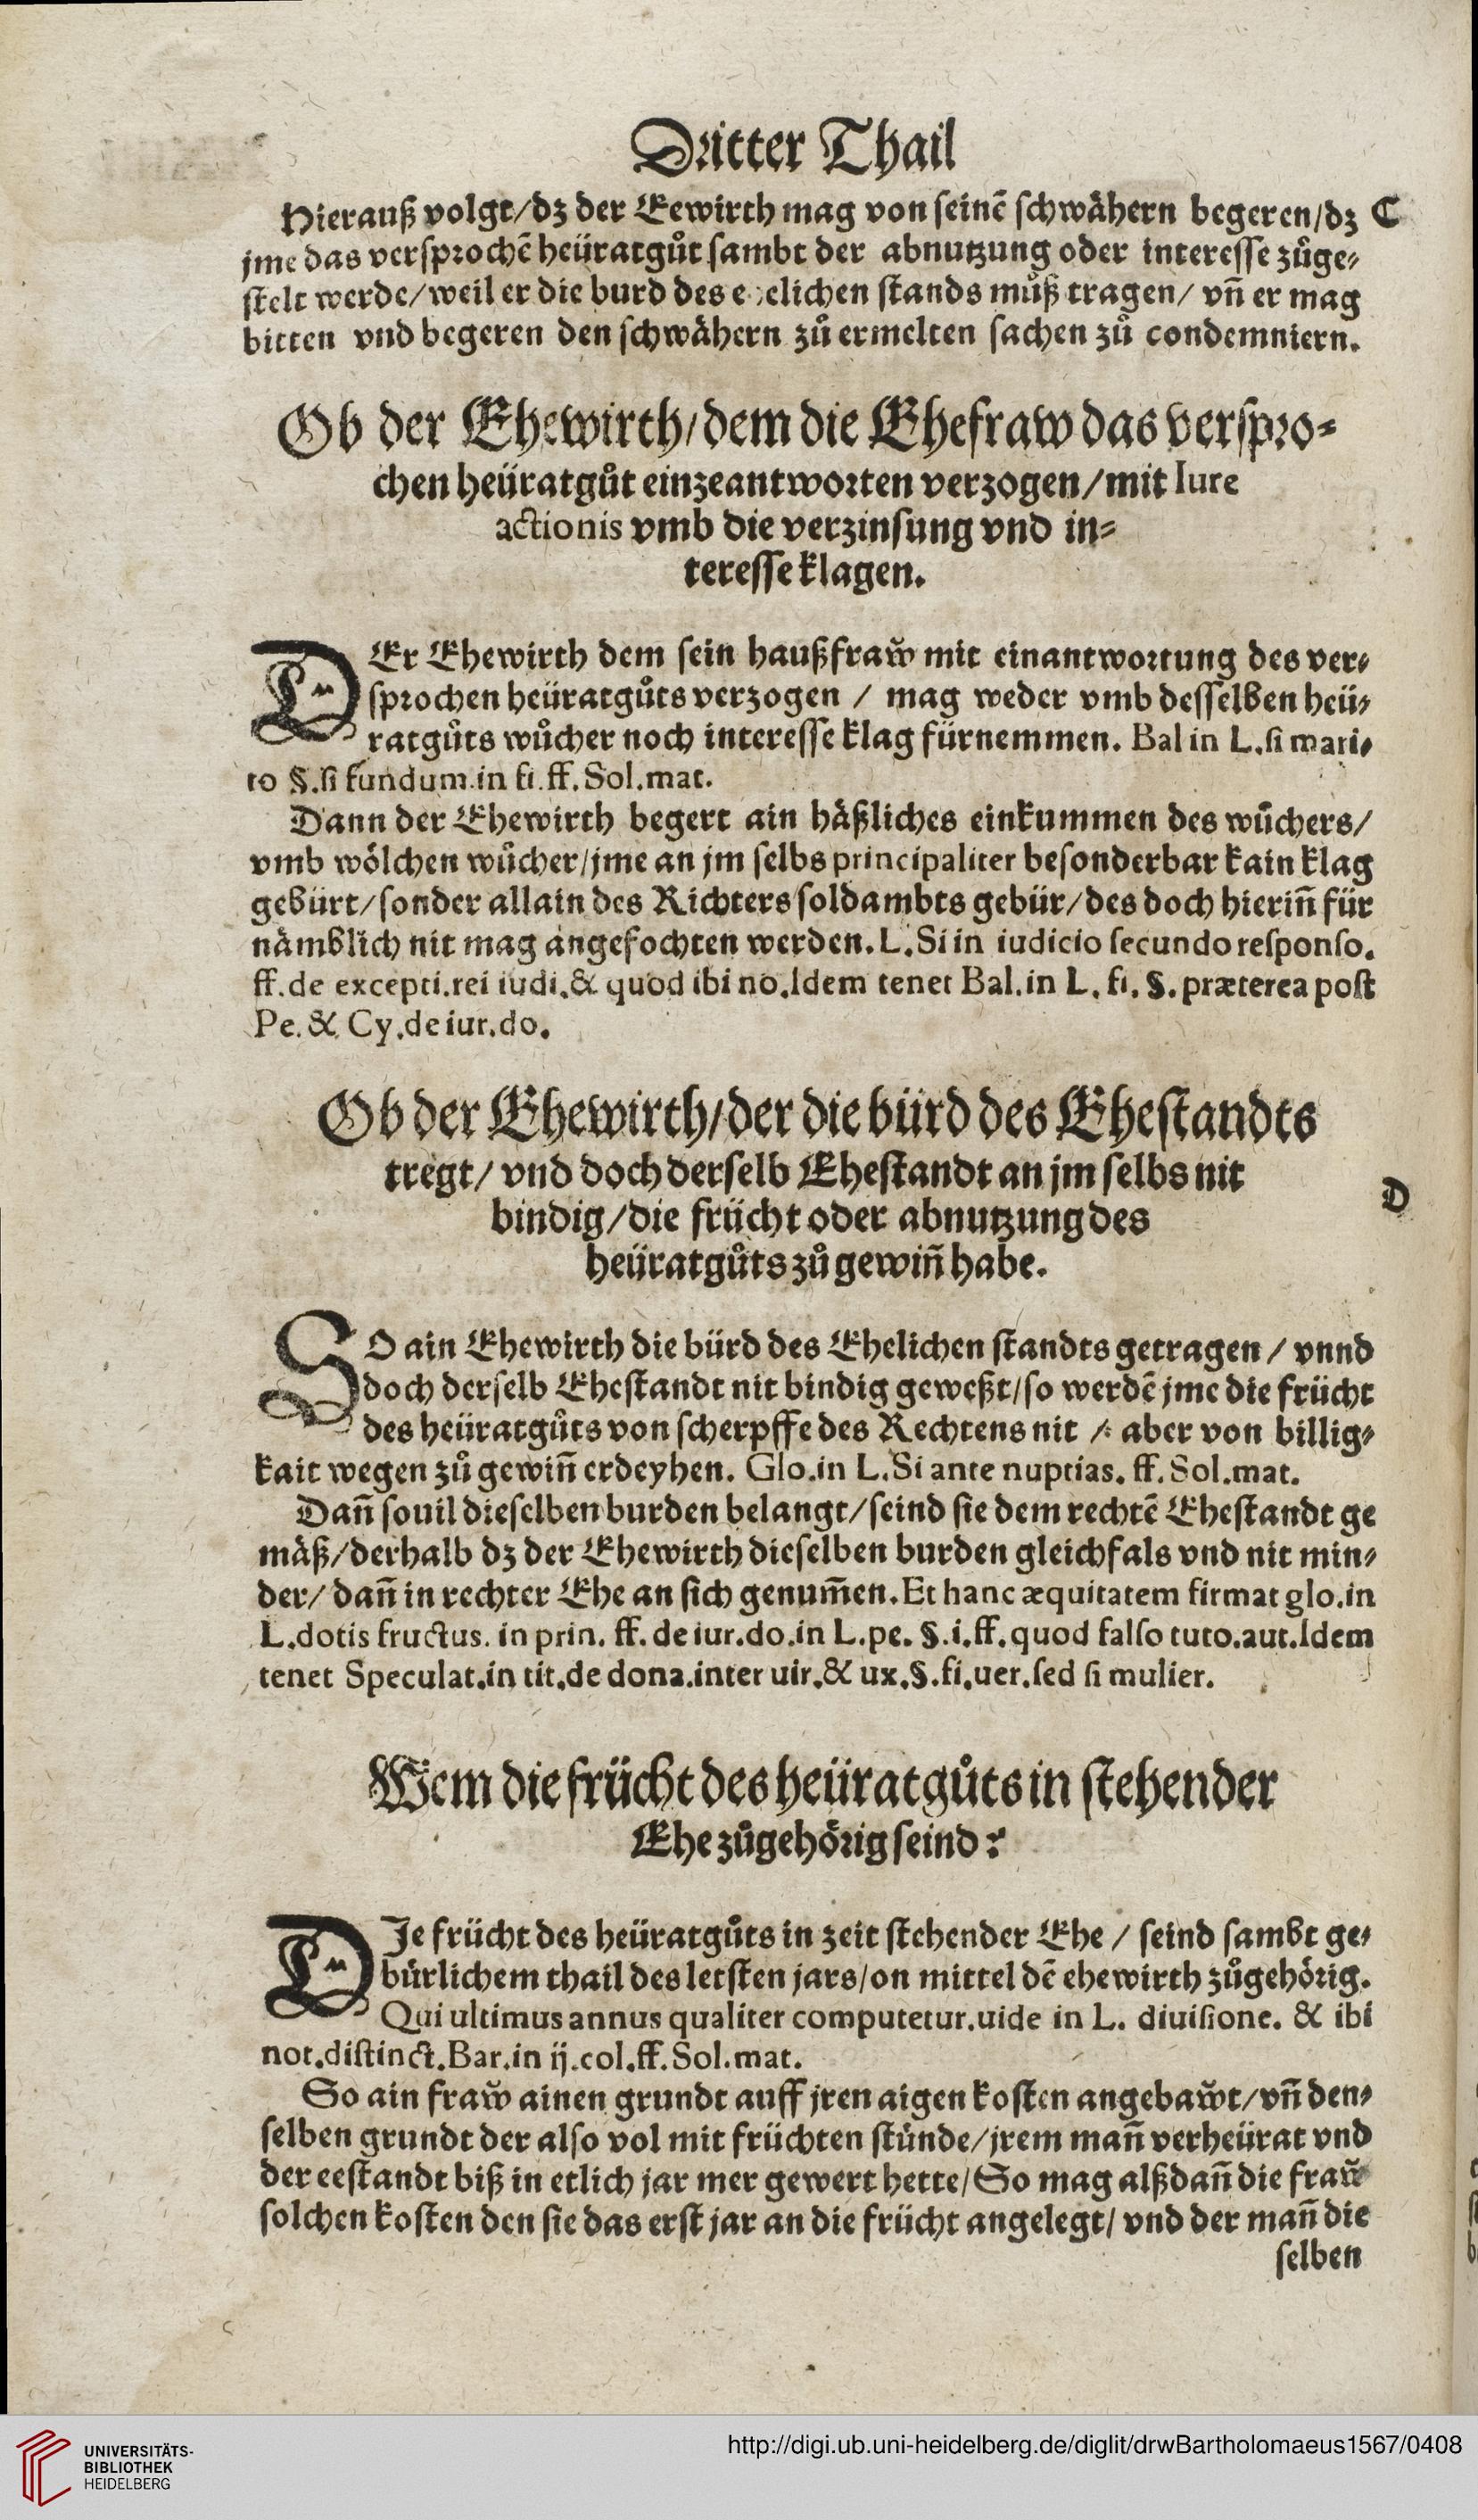 Dritter Thail
Hierauß volgt/dz der Eewirth mag von seinē schwähern begeren/dz C
jme das versprochē heüratgůt sambt der abnutzung oder interesse zůge⸗
stelt werde/weil er die burd des e elichen stands můß tragen/ vn̄ er mag
bitten vnd begeren den schwähern zů ermelten sachen zů condemniern.
Ob der Ehewirth/dem die Ehefraw das verspro⸗
chen heüratgůt einzeantworten verzogen/mit Iure
actionis vmb die verzinsung vnd in⸗
teresse klagen.
DEr Ehewirth dem sein haußfraw̌ mit einantwortung des ver⸗
sprochen heüratgůts verzogen / mag weder vmb desselben heü⸗
ratgůts wůcher noch interesse klag fürnemmen. Bal in L.si mari⸗
to §.si fundum.in fi.ff.Sol.mat.
Dann der Ehewirth begert ain häßliches einkummen des wůchers/
vmb wölchen wůcher/jme an jm selbs principaliter besonderbar kain klag
gebürt/sonder allain des Richters soldambts gebür/des doch hierin̄ für
nämblich nit mag angefochten werden. L.Si in iudicio secundo responso.
ff.de excepti.rei iudi.& quod ibi no.Idem tenet Bal.in L. fi. §. præterea post
Pe. & Cy.de iur.do.
Ob der Ehewirth/der die bürd des Ehestandts
tregt/ vnd doch derselb Ehestandt an jm selbs nit
D
bindig/die frücht oder abnutzung des
heüratgůts zů gewin̄ habe.
SO ain Ehewirth die bürd des Ehelichen standts getragen / vnnd
doch derselb Ehestandt nit bindig geweßt/so werdē jme die frücht
des heüratgůts von scherpffe des Rechtens nit / aber von billig⸗
kait wegen zů gewin̄ erdeyhen. Glo.in L.Si ante nuptias. ff. Sol.mat.
Dan̄ souil dieselben burden belangt/seind sie dem rechtē Ehestandt ge
mäß/derhalb dz der Ehewirth dieselben burden gleichfals vnd nit min⸗
der/ dan̄ in rechter Ehe an sich genum̄en. Et hanc æquitatem firmat glo.in
L.dotis fructus. in prin. ff. de iur.do.in L.pe. §.i.ff.quod falso tuto.aut.Idem
tenet Speculat.in tit.de dona.inter uir.& ux.§.fi.uer.sed si mulier.
Wem die frücht des heüratgůts in stehender
Ehe zůgehörig seind?
DIe frücht des heüratgůts in zeit stehender Ehe / seind sambt ge⸗
bürlichem thail des letsten jars/on mittel dē ehewirth zůgehörig.
Qui ultimus annus qualiter computetur.uide in L. diuisione. & ibi
not.distinct.Bar.in ij.col.ff.Sol.mat.
So ain fraw̌ ainen grundt auff jren aigen kosten angebaw̌t/vn̄ den⸗
selben grundt der also vol mit früchten stůnde/jrem man̄ verheürat vnd
der eestandt biß in etlich jar mer gewert hette/So mag alßdan̄ die fraw̌
solchen kosten den sie das erst jar an die frücht angelegt/ vnd der man̄ die
selben
UNIVERSITÄTS-
BIBLIOTHEK
HEIDELBERG
http://digi.ub.uni-heidelberg.de/diglit/drwBartholomaeus1567/0408